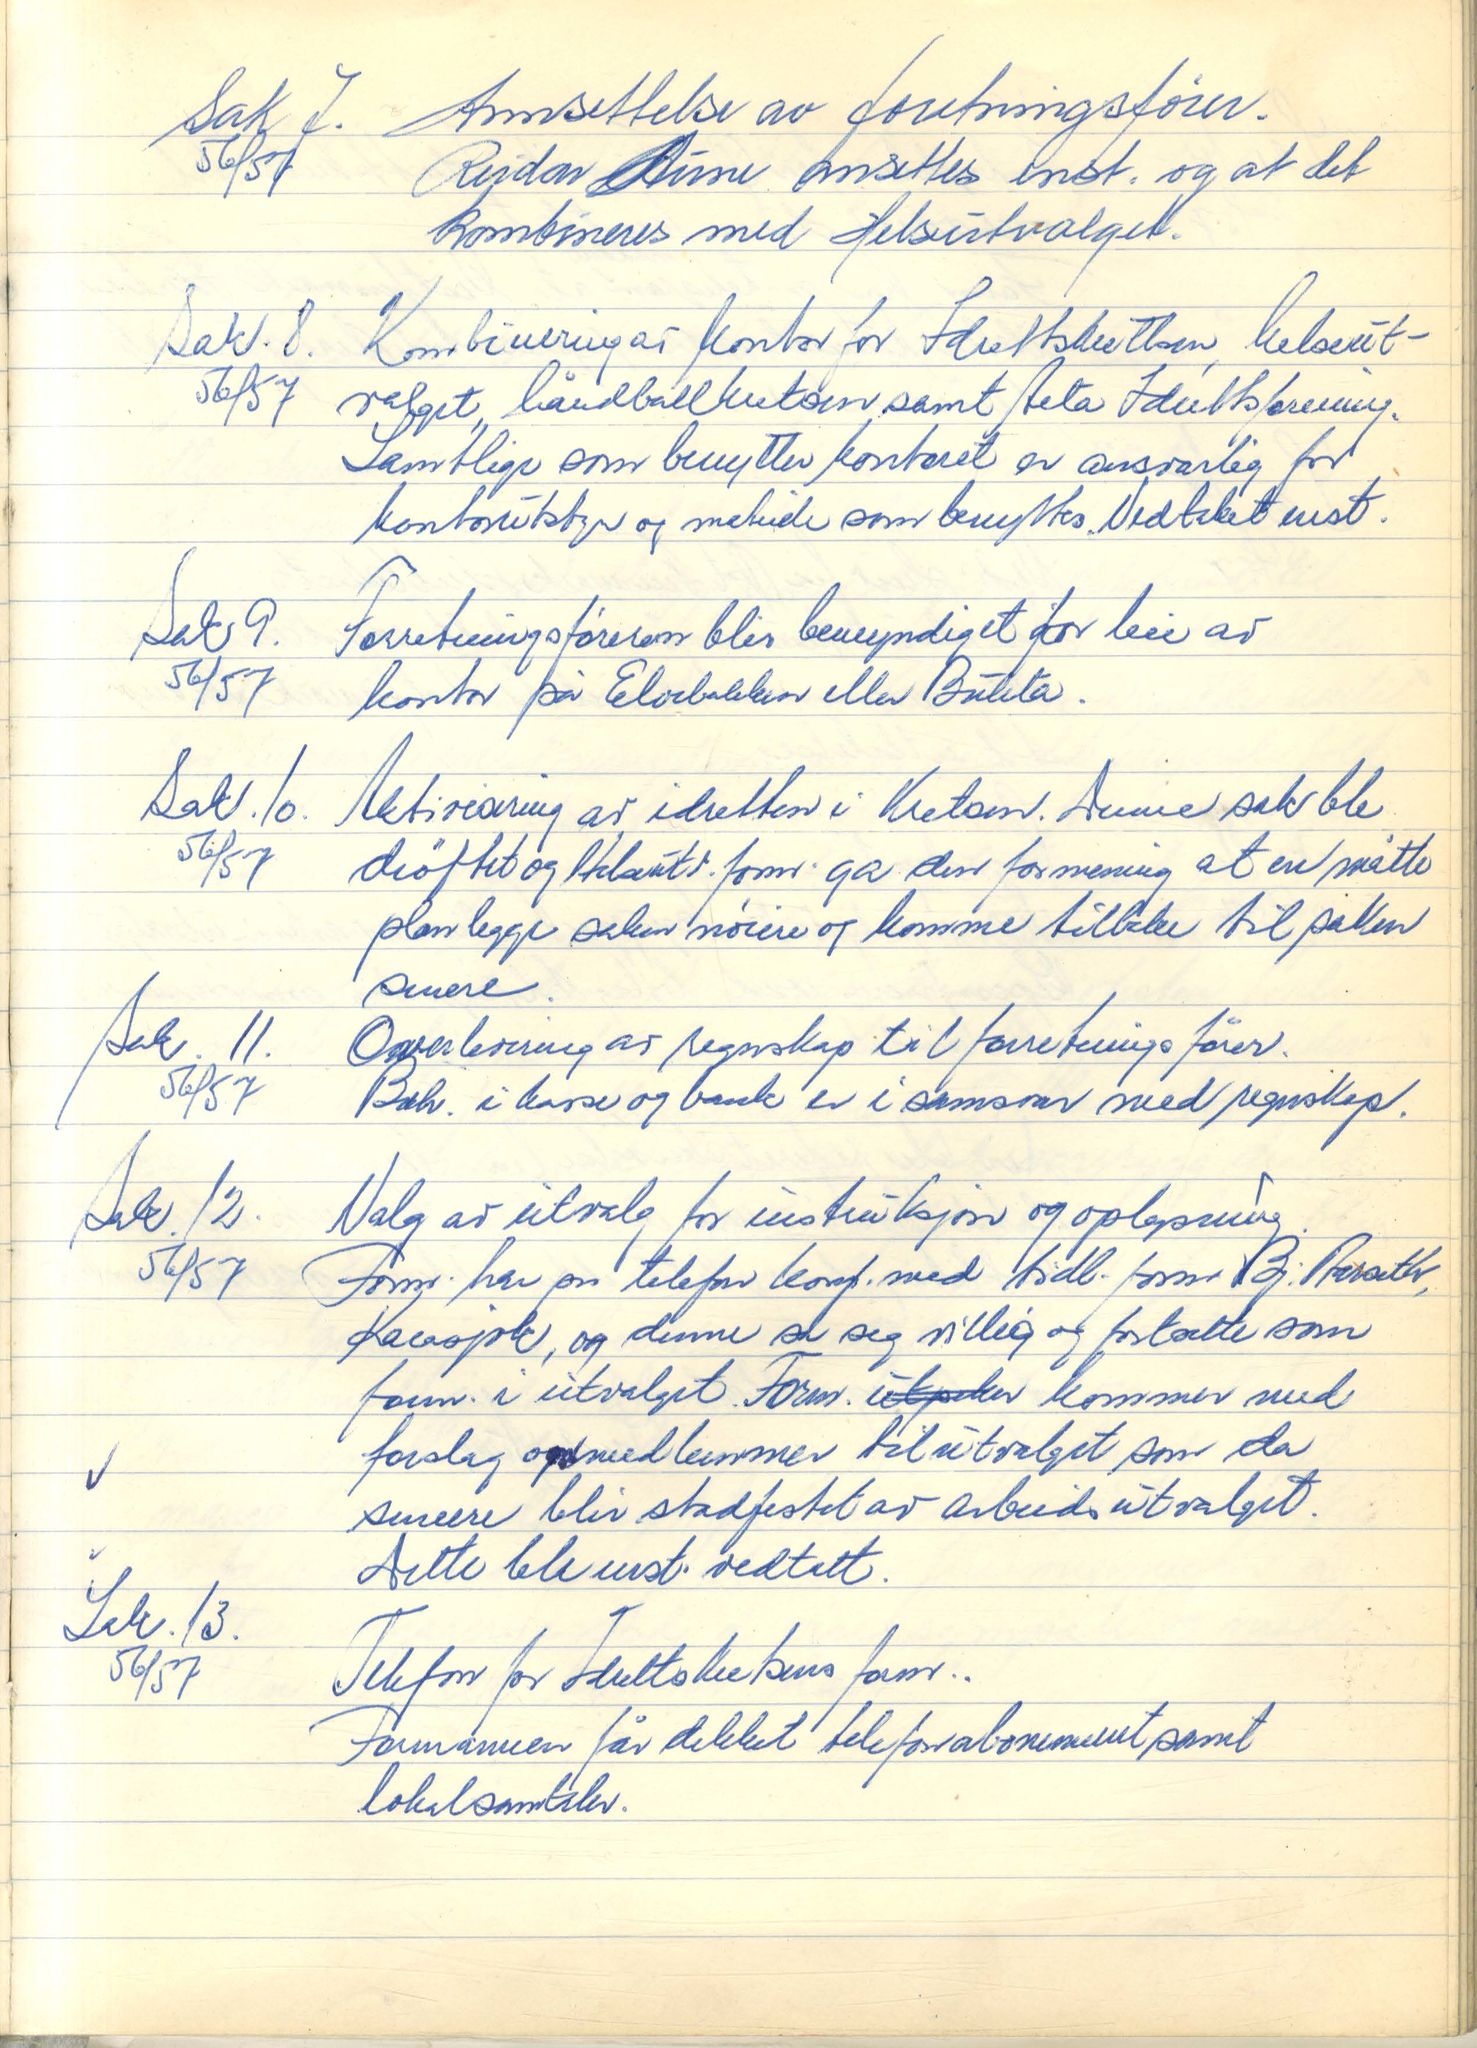 Sak 7. Annsettelse av foretningsfører.
56/57 Reidar ansettes enst. og at det
kombineres med Helseutvalget.
Sak. 8. Kombinering av kontor for Idrettskretsen, helseut-
56/57 valget, håndballkretsen samt Alta Idrettsforening.
Samtlige som benytter kontoret er ansvarlig for
kontorutstyr og som benyttes. Vedtatt enst.
Sak 9. Forretningsføreren blir bemyndiget for leie av
56/57 kontor på Elvebakken eller Bukta.
Sak. 10. Aktivisering av idretten i Kretsen. Denne sak ble
56/57 drøftet og Helseutv. form. ga den formening at en måtte
planlegge saken nøiere og komme tilbake til saken
senere.
Sak. 11. Overlevering av regnskap til forretningsfører.
56/57 Beh. i kasse og bank er i samsvar med regnskap.
Sak. 12. Valg av utvalg for instruksjon og oplysning.
56/57 Form. har pr telefon konf. med tidl. form Bj.
Karasjok, og denne sa seg villig og fortsette som
form. i utvalget. Form. utpeker kommer med
forslag medlemmer til utvalget som da
senere blir stadfestet av arbeidsutvalget.
Dette ble enst. vedtatt.
Sak. 13.
56/57 Telefon for Idrettskretsens form..
Formannen får dekket telefonabonement samt
lokalsamtaler.